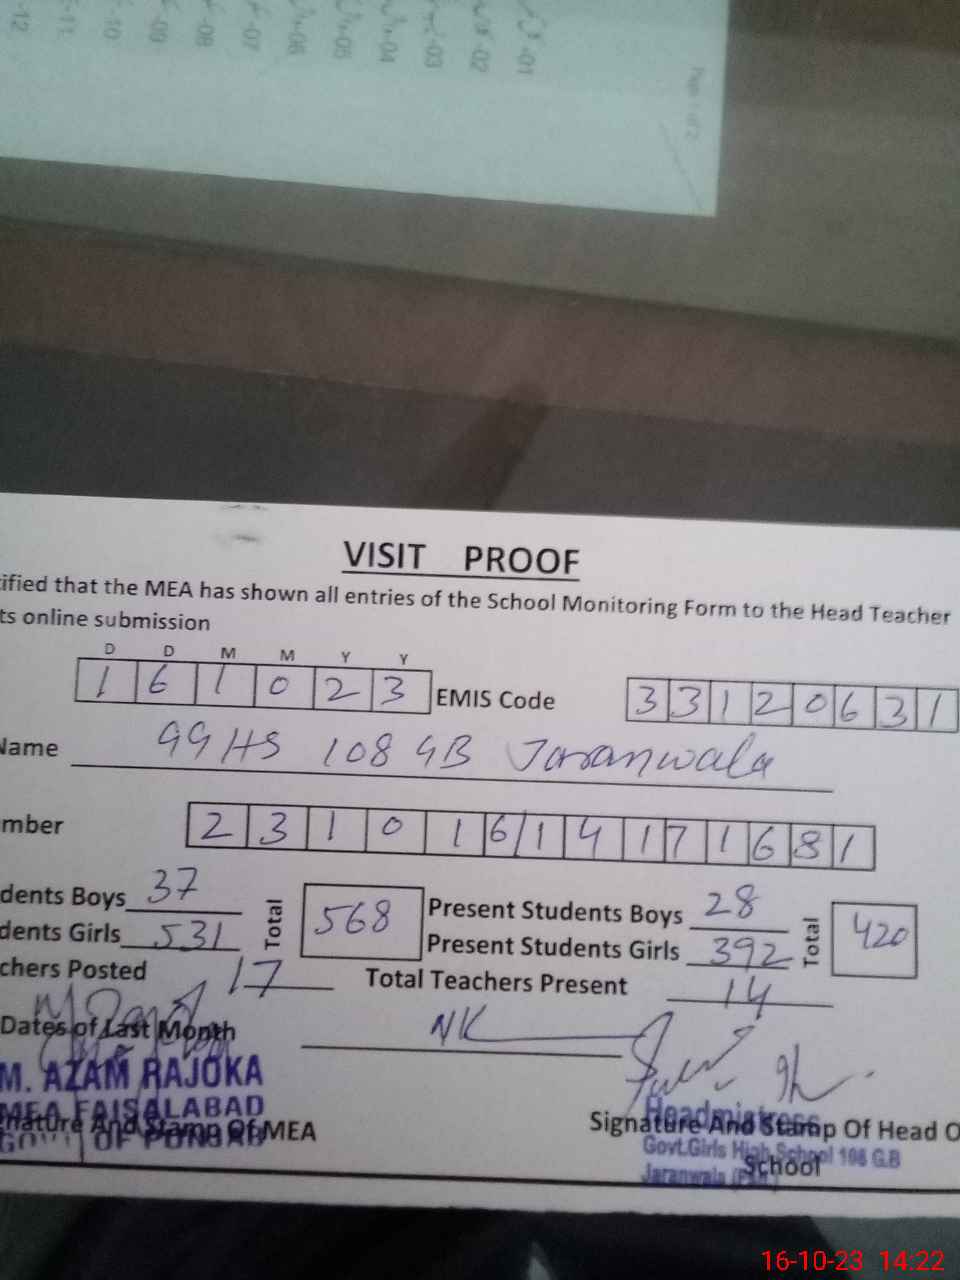 -01
-02
-03
-04
-05
-06
-07
-08
-09
-10
-11
-12
VISIT PROOF
ified that the MEA has shown all entries of the School Monitoring Form to the Head Teacher
ts online submission
D D M M Y Y
1 6 1 0 2 3 EMIS Code 3 3 1 2 0 6 3 1
Name GGHS 108 GB Jaranwala
mber 2 3 1 0 1 6 1 4 1 7 1 6 8 1
dents Boys 37 Total 568 Present Students Boys 28 Total 420
dents Girls 531 Present Students Girls 392
chers Posted 17 Total Teachers Present 14
Dates of Last Month NK
M. AZAM RAJOKA
MEA FAISALABAD
GOVT OF PUNJAB
nature And Stamp Of MEA
Headmistress
Signature And Stamp Of Head O
Govt.Girls High School 108 G.B
School
Jaranwala
16-10-23 14:22